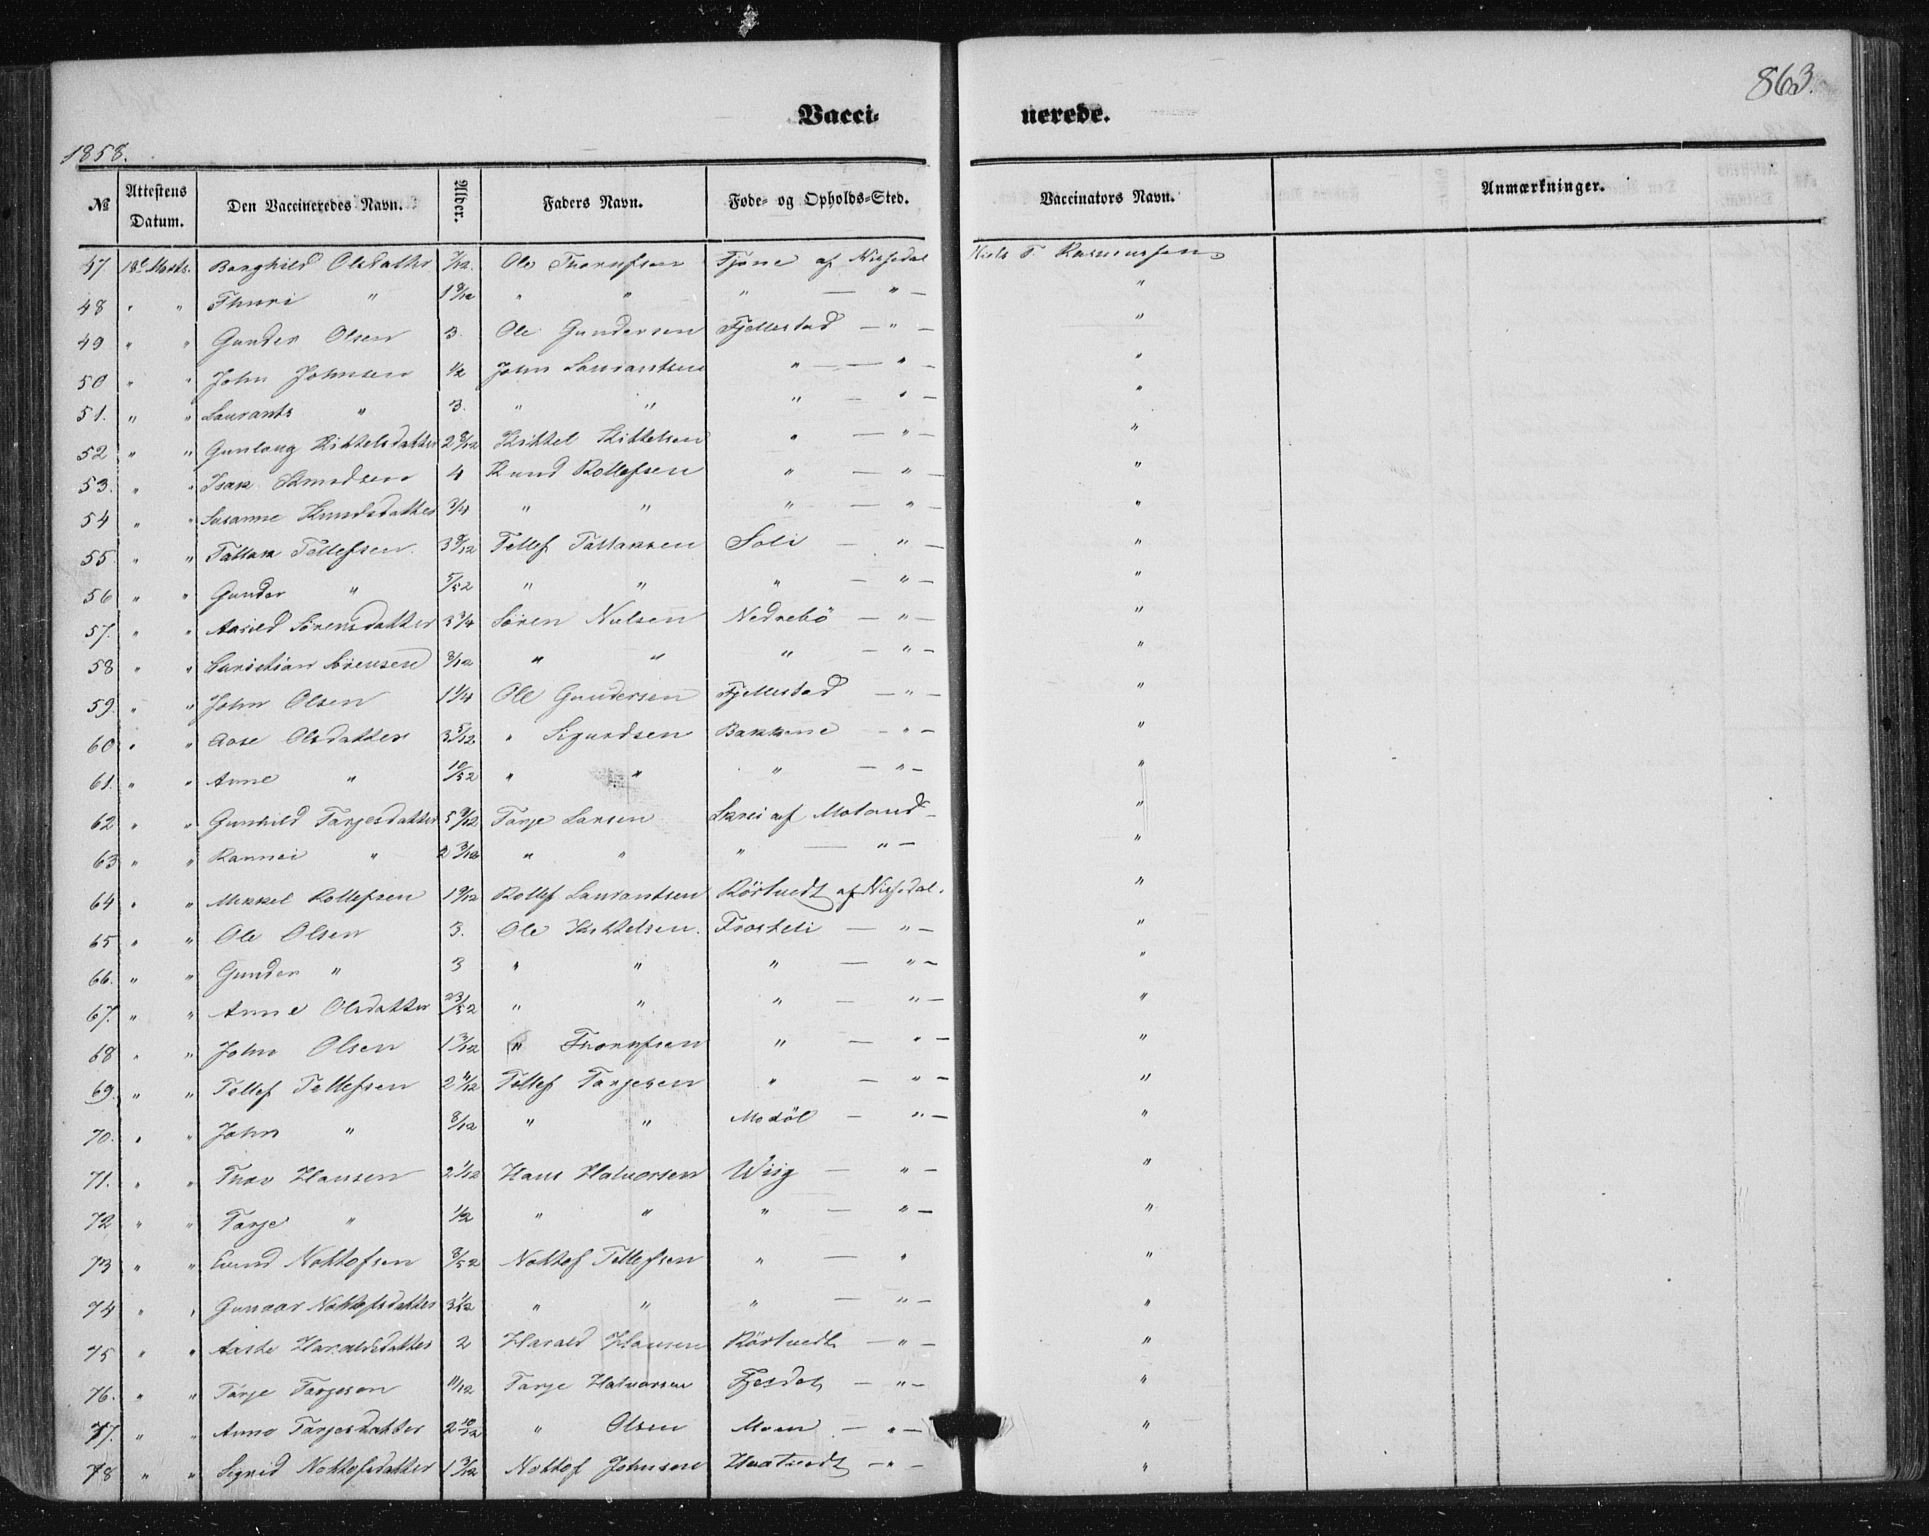 863.
Vacci- nerede.
1858.
№ Attestens Datum. Den Vaccineredes Navn. Alder. Faders Navn. Føde- og Opholds-Sted. Vaccinators Navn. Anmærkninger.
47. 18de Marts. Borghild Olsdatter 7/12. Ole Thorufsen Fjone af Nissedal Niels T. Rasmussen
48 " " Thuri " 1 9/12 " " " — " — "
49 " " Gunder Olsen 3. Ole Gundersen Fjellestad — " — "
50 " " John Johnsen 1/2 John Laurantsen " — — " "
51. " " Laurants " 3. " " " — " — "
52 " " Gunlaug Kittelsdatter 2 8/12 Kittel Kittelsen " — " — "
53. " " Isak Knudsen 4 Knud Rollefsen " — " — "
54 " " Susanne Knudsdatter 3/4 " " " — " — "
55. " " Tallak Tellefsen. 3 9/12 Tellef Tallaksen Soli — " — "
56 " " Gunder " 5/52 " " " — " — "
57. " " Aasild Sørensdatter 3 3/4 Søren Nielsen Nedrebö — " — "
58 " " Christian Sørensen 8/12 " " " — " — "
59. " " John Olsen 1 1/4 Ole Gundersen Fjellestad — " — "
60 " " Aase Olsdatter 3 5/12 " Sigurdsen Bakkene — " — "
61. " " Anne " 10/52 " " " — " — "
62 " " Gunhild Tarjesdatter 5 9/12 Tarje Larsen Skrei af Moland — "
63 " " Rannei " 2 3/12 " " " — " — "
64 " " Mikkel Rollefsen 1 9/12 Rollef Laurantsen Körtvedt af Nissedal. "
65 " " Ole Olsen 3. Ole Kittelsen. Trosteli — " — "
66. " " Gunder " 3 " " " — " — "
67. " " Anne Olsdatter 23/52 " " " — " — "
68 " " John Olsen 1 3/12 " Thorufsen " — " — "
69. " " Tellef Tellefsen 2 4/12 Tellef Tarjesen " — " — "
70. " " John " 8/12 " " Modöl — " — "
71. " " Thov Hansen 2 1/12 Hans Halvorsen Wiig — " — "
72 " " Tarje " 1/2 " " " — " — "
73 " " Evind Nottofsen 8/52 Nottof Tellefsen " — " "
74 " " Gunvor Nottofsdatter 3 1/2 " " " — " — "
75 " " Aaste Haraldsdatter 2 Harald Hansen Körtvedt — " — "
76. " " Tarje Tarjesen 11/12 Tarje Halvorsen Fjesdal — " — "
77. " " Anne Tarjesdatter 2 10/12 " Olsen Moen — " — "
78 " " Sigrid Nottofsdatter 1 3/12 Nottof Johnsen Hvatvedt — " — "